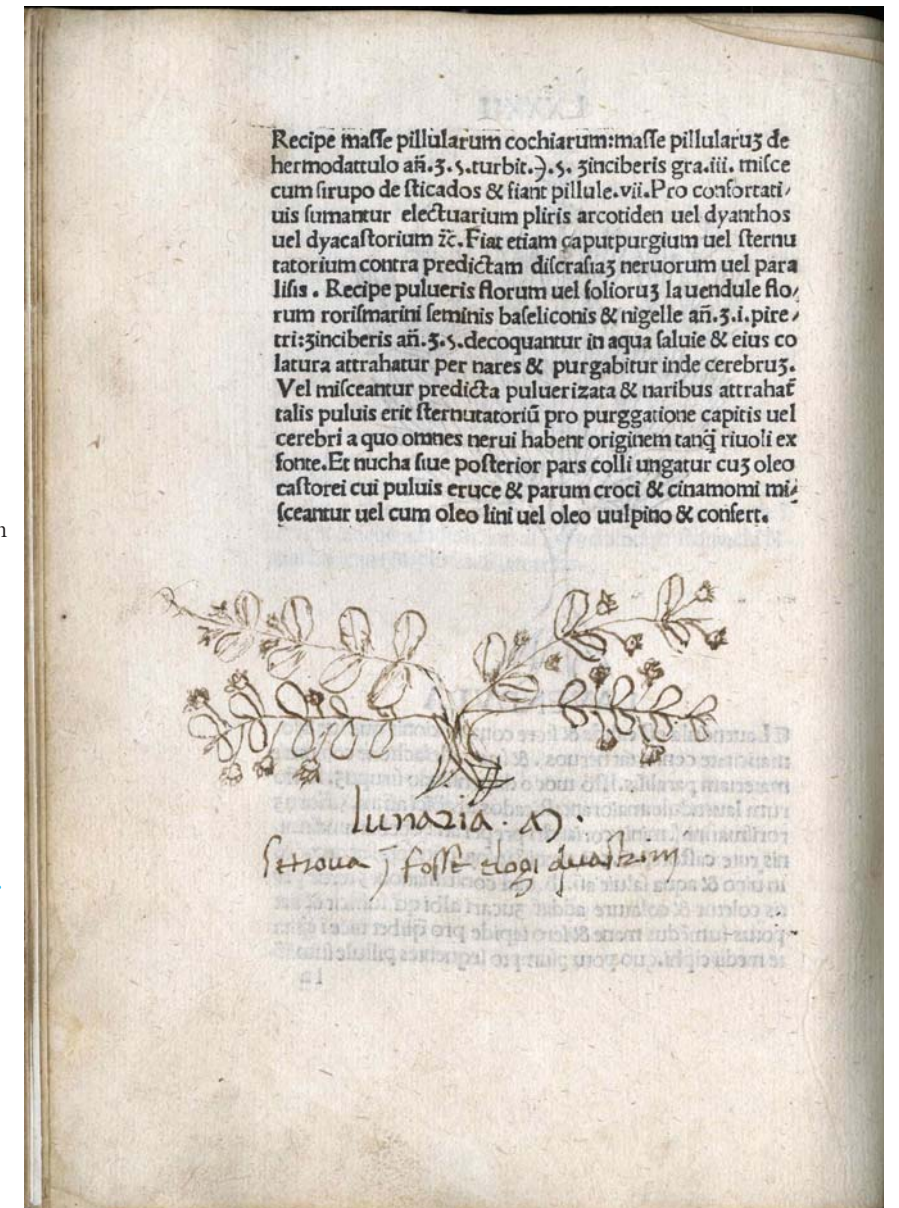 Recipe masse pillularum cochiarum:masse pillularuʒ de
hermodattulo añ.ʒ.s.turbit.℈.s. ʒinciberis gra.iii. misce
cum sirupo de sticados & fiant pillule.vii.Pro confortati/
uis sumantur electuarium pliris arcotiden uel dyanthos
uel dyacastorium ⁊c.Fiat etiam caputpurgium uel sternu
tatorium contra predictam discrasiaʒ neruorum uel para
lisis . Recipe pulueris florum uel folioruʒ lauendule flo/
rum rorismarini seminis baseliconis & nigelle añ.ʒ.i.pire/
tri:ʒinciberis añ.ʒ.s.decoquantur in aqua saluie & eius co
latura attrahatur per nares & purgabitur inde cerebruʒ.
Vel misceantur predicta puluerizata & naribus attrahat̃
talis puluis erit sternutatoriũ pro purggatione capitis uel
cerebri a quo omnes nerui habent originem tanq̃ riuoli ex
fonte.Et nucha siue posterior pars colli ungatur cuʒ oleo
castorei cui puluis eruce & parum croci & cinamomi mi/
sceantur uel cum oleo lini uel oleo uulpino & confert.
lunaria
setroua fosse